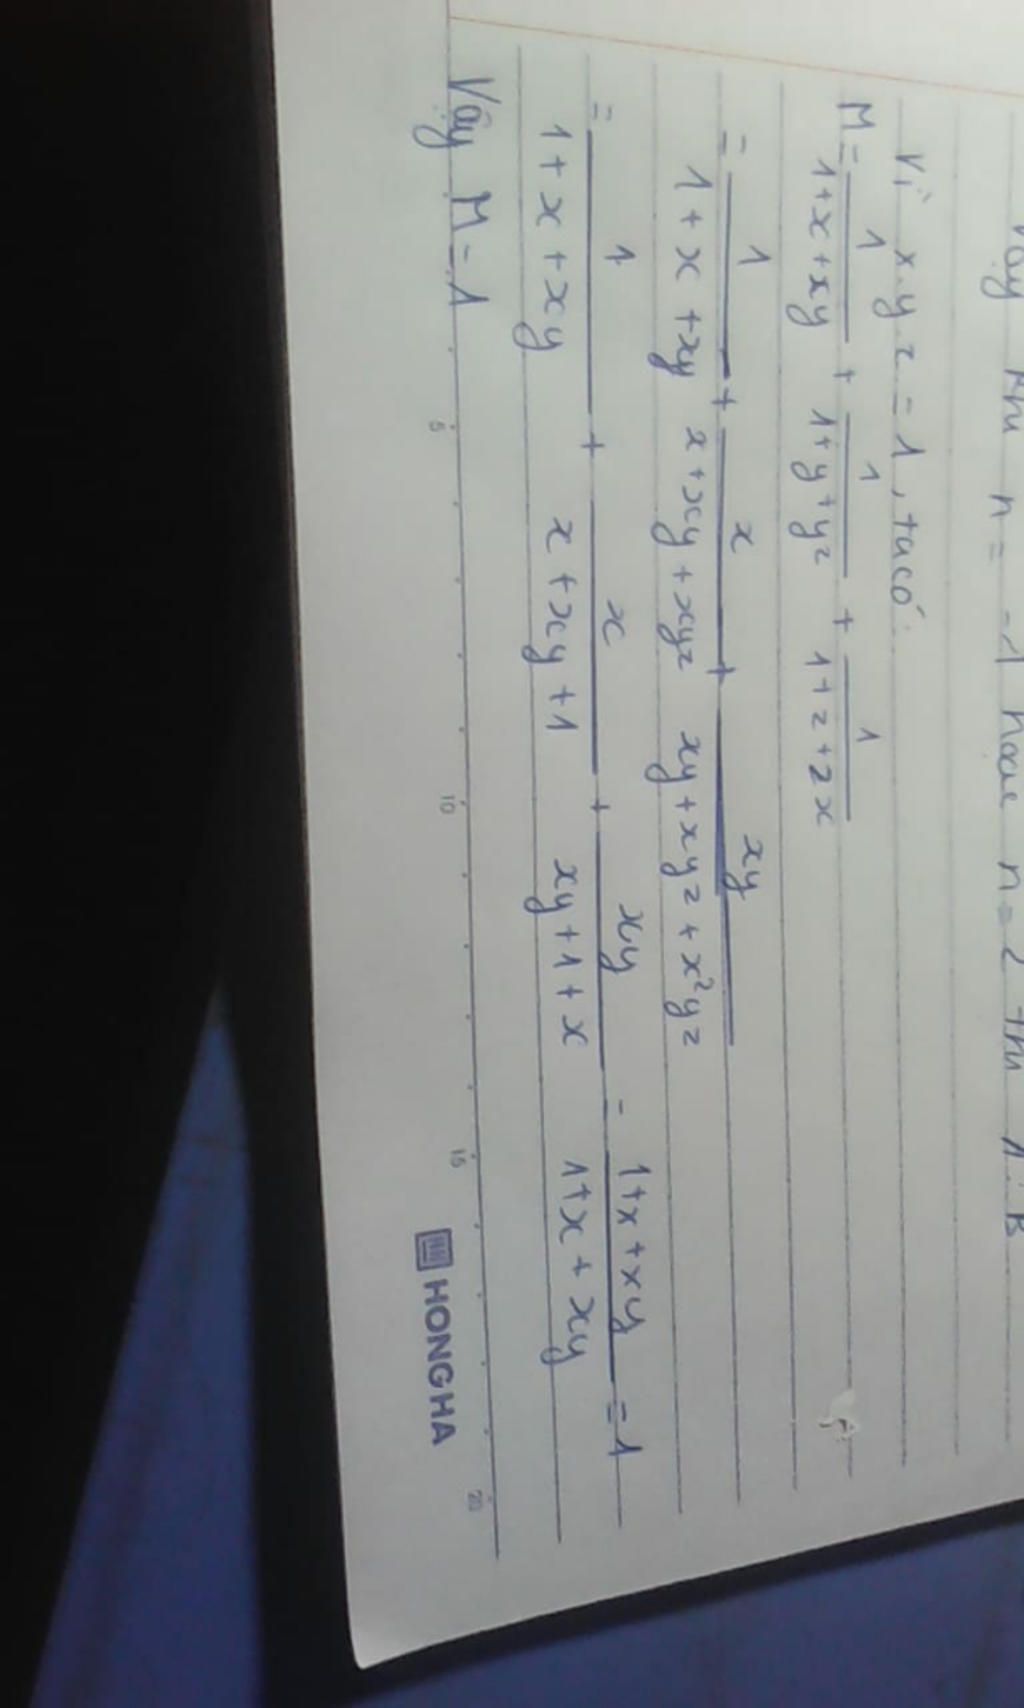 Vậy khi n = -1 hoặc n = 2 thì A ⋮ B
Vì x.yz = 1, ta có:
M = 1/(1+x+xy) + 1/(1+y+yz) + 1/(1+z+zx)
= 1/(1+x+xy) + x/(x+xy+xyz) + xy/(xy+xyz+x²yz)
= 1/(1+x+xy) + x/(x+xy+1) + xy/(xy+1+x) = (1+x+xy)/(1+x+xy) = 1
Vậy M = 1
5 10 15 20
HONG HA